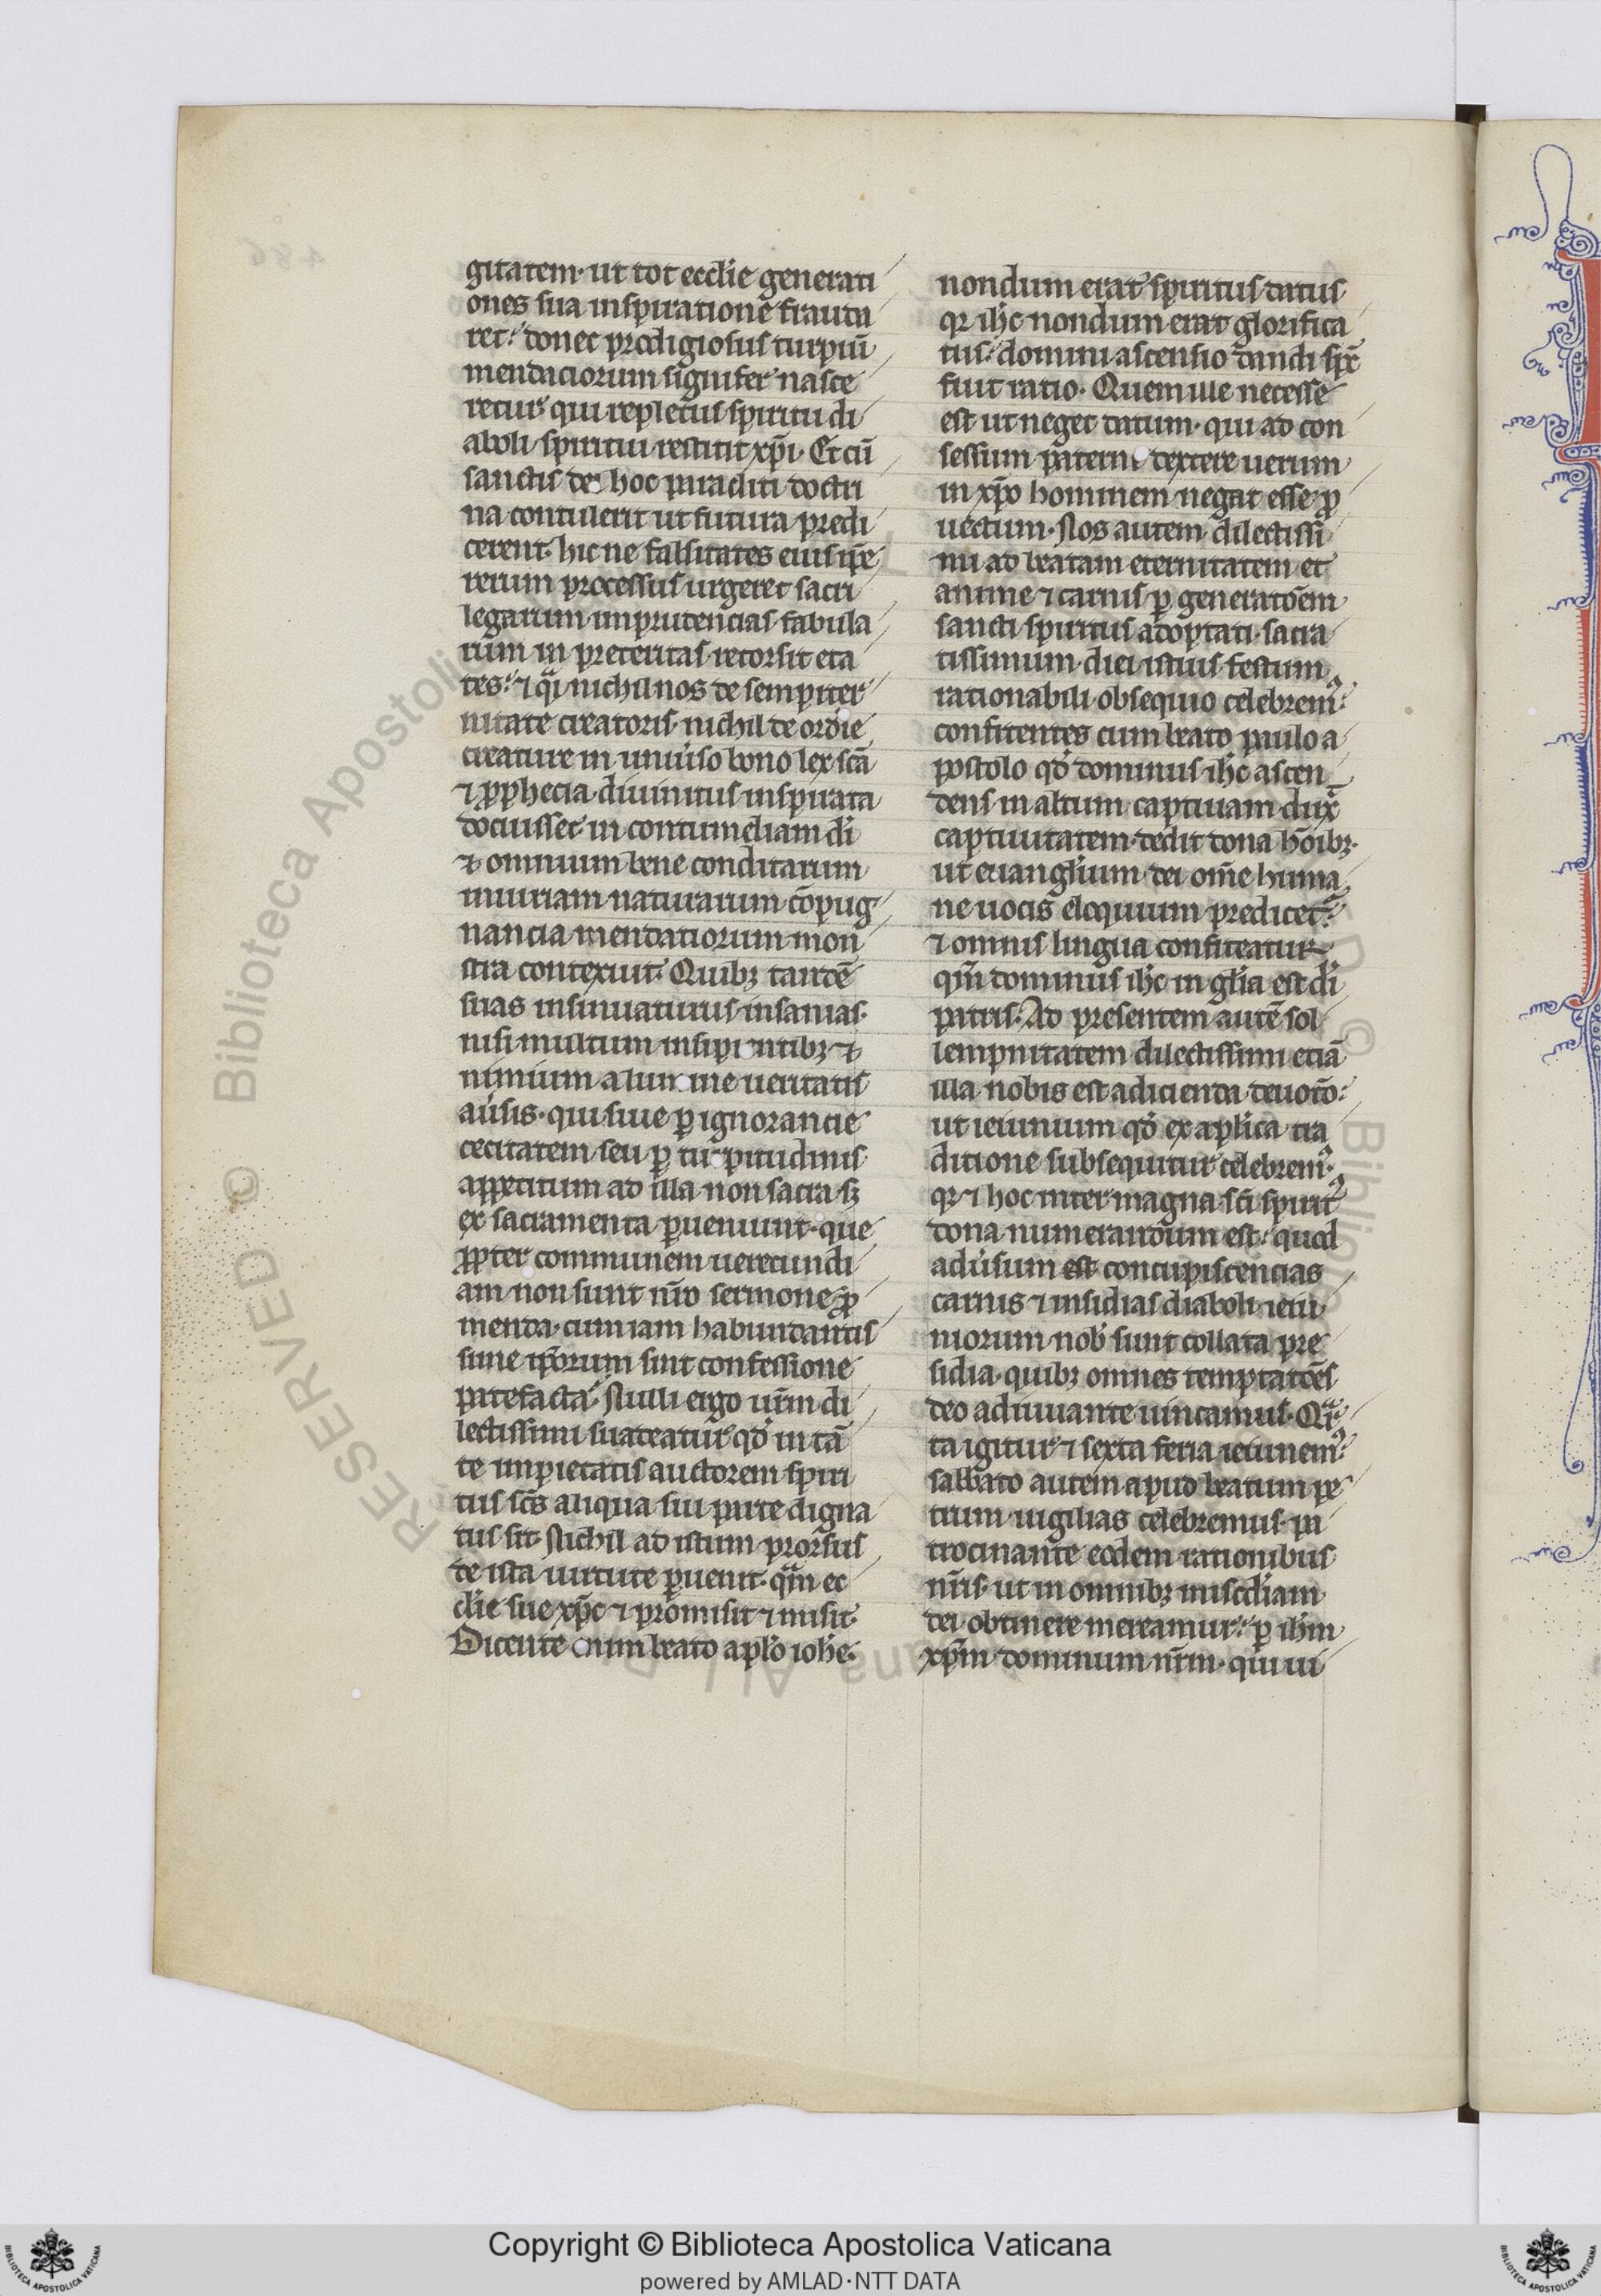 gitatem· ut tot ecclie generati
ones sua inspiratione frauda
ret· donec prodigiosus turpiū
mendaciorum signifer nasce
retur qui repletus spiritu di
aboli spiritui restitit xp̄i· Et cū
sanctis dei hoc paraditi doctri
na contulerit ut futura predi
cerent· hic ne falsitates eius ip̄e
rerum processus urgeret sacri
legarum imprudencias fabula
rum in preteritas retorsit eta
tes· ⁊ q̄i nichil nos de sempiter
nitate creatoris nichil de ordīe
creature in uniuˀso bono lex scā
⁊ ꝓphecia diuinitus inspirata
docuisset· in contumeliam dī
⁊ omnium bene conditarum
iniuriam naturarum cōpug
nancia mendatiorum mon
stra contexuit· Quibꝫ tandē
suas insinuaturus insanias·
nisi multum insipientibꝫ ⁊
nimium a lumine ueritatis
auˀsis· qui siue ꝑ ignorancie
cecitatem seu ꝑ turpitudinis
appetitum ad illa non sacra sꝫ
ex sacramenta ꝑueniunt· que
ꝓpter communem uerecundi
am non sunt nr̄o sermone ꝓ
menda· cum iam habundantis
sime ip̄orum sint confessione
patefacta· Nulli ergo ur̄m di
lectissimi suadeatur qđ in tā
te impietatis auctorem spiri
tus sc̄s aliqua sui parte digna
tus sit· Nichil ad istum prorsus
de ista uirtute ꝑuenit· qm̄ ec
clie sue xp̄c ⁊ promisit ⁊ misit·
Dicente enim beato aplo iohe·
nondum erat spiritus datus
qꝛ ihc nondum erat glorifica
tus· domini ascensio dandi sp̄c
fuit ratio· Quem ille necesse
est ut neget datum· qui ad con
sessum paterne dextere uerum
in xp̄o hominem negat esse ꝓ
uectum· Nos autem dilectissi
mi ad beatam eternitatem et
anime ⁊ carnis ꝑ generatōem
sancti spiritus adoptati· sacra
tissimum diei istius festum
rationabili obsequio celebremꝰ·
confitentes cum beato paulo a
postolo qđ dominus ihc ascen
dens in altum captiuam dux̄
captiuitatem· dedit dona hōibꝫ·
ut euanglium dei om̄e huma
ne uocis eloquium predicet·
⁊ omnis lingua confiteatur
qm̄ dominus ihc in gl̄ia est dī
patris· Ad presentem autē sol
lempnitatem dilectissimi etiā
illa nobis est adicienda deuotō·
ut ieiunium qđ ex aplica tra
ditione subsequitur celebremꝰ·
qꝛ ⁊ hoc inter magna sc̄i spiritꝰ
dona numerandum est· quod
aduˀsum est concupiscencias
carnis ⁊ insidias diaboli ieiu
niorum nob̄ sunt collata pre
sidia· quibꝫ omnes temptatōes
deo adiuuante uincamus· Qar
ta igitur ⁊ sexta feria ieiunemꝰ·
sabbato autem apud beatum pe
trum uigilias celebremus· pa
trocinante eodem rationibus
nr̄is· ut in omnibꝫ miscdiam
dei obtinere mereamur· ꝑ ihm
xp̄m dominum nr̄m· qui ui
Copyright © Biblioteca Apostolica Vaticana
powered by AMLAD·NTT DATA